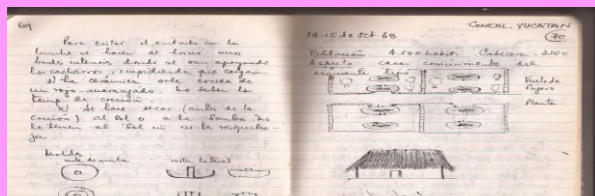 69
Para evitar el contacto con la
lumbre se hacen al horno unos
bordes internos donde se van apoyando
los cacharros, impidiendo que caigan
La cerámica sale cocida de
un rojo-anaranjado. No saben la
temp. de cocción.
se hace secar (antes de la
cocción) al Sol o a la sombra. No
le temen al Sol ni se la resquebra-
ja.
Moldes
vista de arriba vista lateral
CONCAL, YUCATAN
15 de Oct 68
70
Población: 4.500 habit. Cabecera: 3200
Aspecto casas
siguiente tipo
Vuelo de
Pájaro
Planta